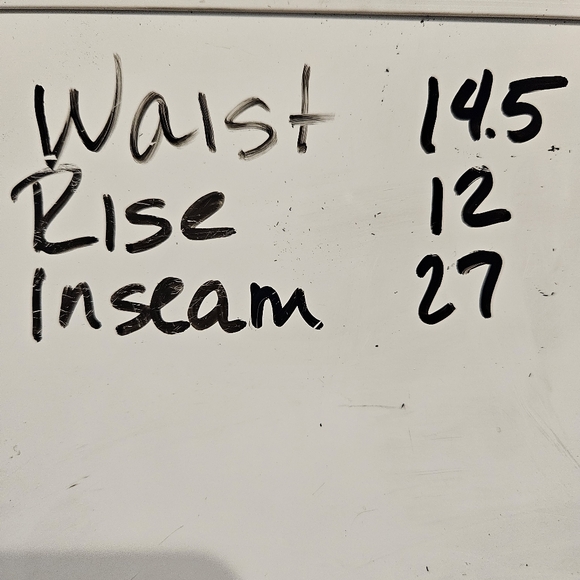 Waist 14.5
Rise 12
Inseam 27